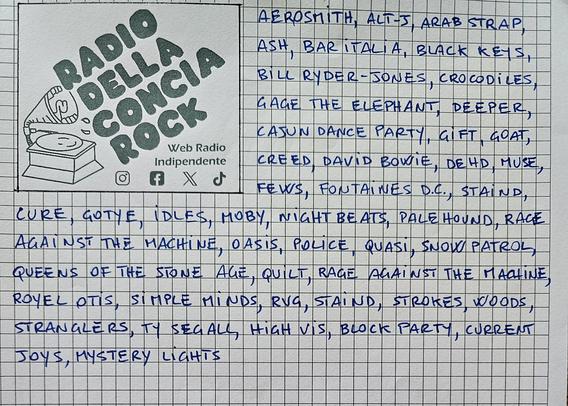 RADIO
DELLA
CONCIA
ROCK
Web Radio
Indipendente
AEROSMITH, ALT-J, ARAB STRAP,
ASH, BAR ITALIA, BLACK KEYS,
BILL RYDER-JONES, CROCODILES,
GAGE THE ELEPHANT, DEEPER,
CAJUN DANCE PARTY, GIFT, GOAT,
CREED, DAVID BOWIE, DEHD, MUSE,
FEWS, FONTAINES D.C., STAIND,
CURE, GOTYE, IDLES, MOBY, NIGHT BEATS, PALEHOUND, RAGE
AGAINST THE MACHINE, OASIS, POLICE, QUASI, SNOW PATROL,
QUEENS OF THE STONE AGE, QUILT, RAGE AGAINST THE MACHINE,
ROYEL OTIS, SIMPLE MINDS, RVG, STAIND, STROKES, WOODS,
STRANGLERS, TY SEGALL, HIGH VIS, BLOCK PARTY, CURRENT
JOYS, MYSTERY LIGHTS